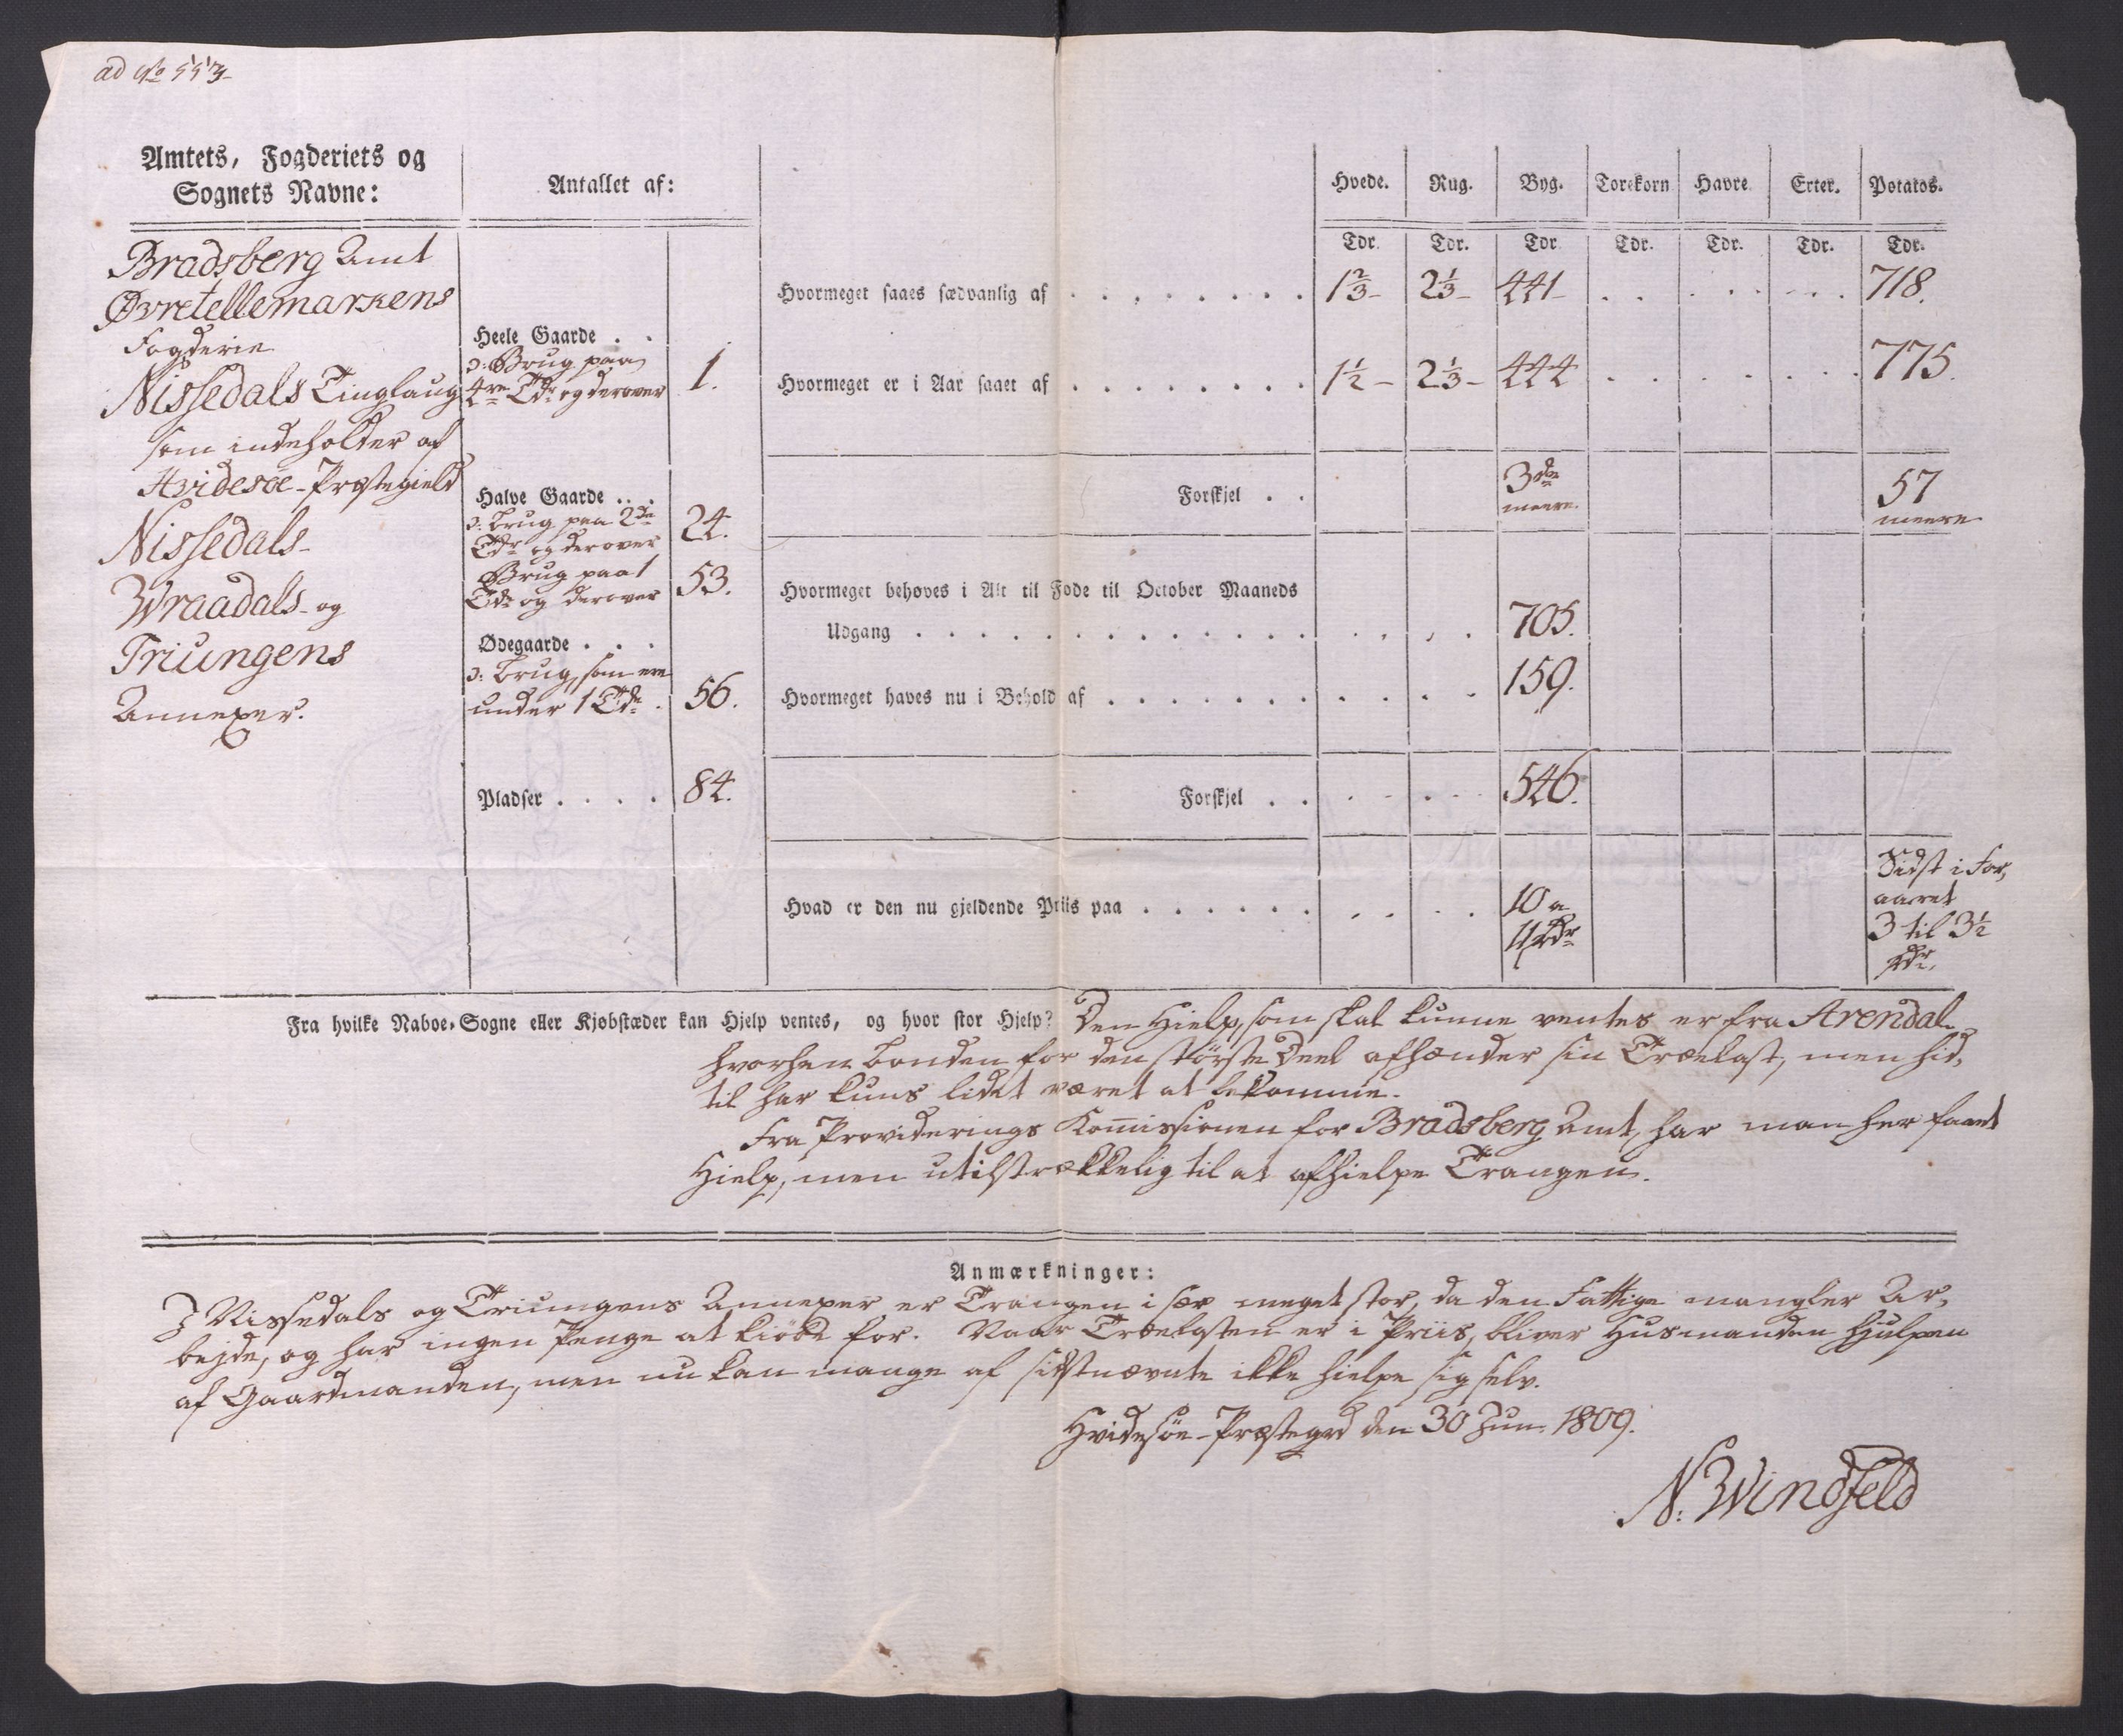 ad No 557
Amtets, Fogderiets og
Sognets Navne:
Antallet af:
Hvede. Rug. Byg. Torekorn Havre Erter. Potatos.
Tdr. Tdr. Tdr. Tdr. Tdr. Tdr. Tdr.
Bradsberg Amt
Øvretellemarkens
Fogderie
Nissedals Tinglaug
som indeholder af
Hvidesøe-Præstegield
Nissedals-
Wraadals- og
Triungens
Annexer.
Heele Gaarde . .
ɔ: Brug paa
4re Tdr og derover 1.
Halve Gaarde . . .
ɔ: Brug paa 2de
Tdr og derover 24.
Brug paa 1
Tde og derover 53.
Ødegaarde . . .
ɔ: Brug, som ere
under 1 Tde . 56.
Pladser . . . . 84.
Hvormeget saaes sædvanlig af . . . . . . . . 1⅔- 2⅓- 441- . . . . . . . 718.
Hvormeget er i Aar saaet af . . . . . . . . 1½- 2⅓- 444 . . . . . . . 775.
Forskjel . . 3de 57
meere. meere
Hvormeget behøves i Alt til Føde til October Maaneds
Udgang . . . . . . . . . . . . . . . . . 705.
Hvormeget haves nu i Behold af . . . . . . . . . . . 159.
Forskjel . . . . . . . 546.
Hvad er den nu gjeldende Priis paa . . . . . . . . . . 10 a
11 Rdr
Sidst i For,
aaret
3 til 3½
Rdr.
Fra hvilke Naboe-Sogne eller Kjøbstæder kan Hjelp ventes, og hvor stor Hjelp? Den Hielp, som skal kunne ventes er fra Arendal
hvorhen Bonden for den største Deel afhænder sin Trælast, men hid,
til har kuns lidet været at bekomme.
Fra Providerings Kom̄issionen for Bradsberg Amt, har man her faaet
Hielp, men utilstrækkelig til at afhielpe Trangen.
Anmærkninger:
I Nissedals og Triungens Annexer er Trangen i sær meget stor, da den Fattige mangler Ar,
bejde, og har ingen Penge at kiøbe for. Naar Trælasten er i Priis, bliver Husmanden hjulpen
af Gaardmanden, men nu kan mange af sidstnævnte ikke hielpe sig selv.
Hvidesøe-Præstegrd den 30 Jun. 1809.
N: Windfeld